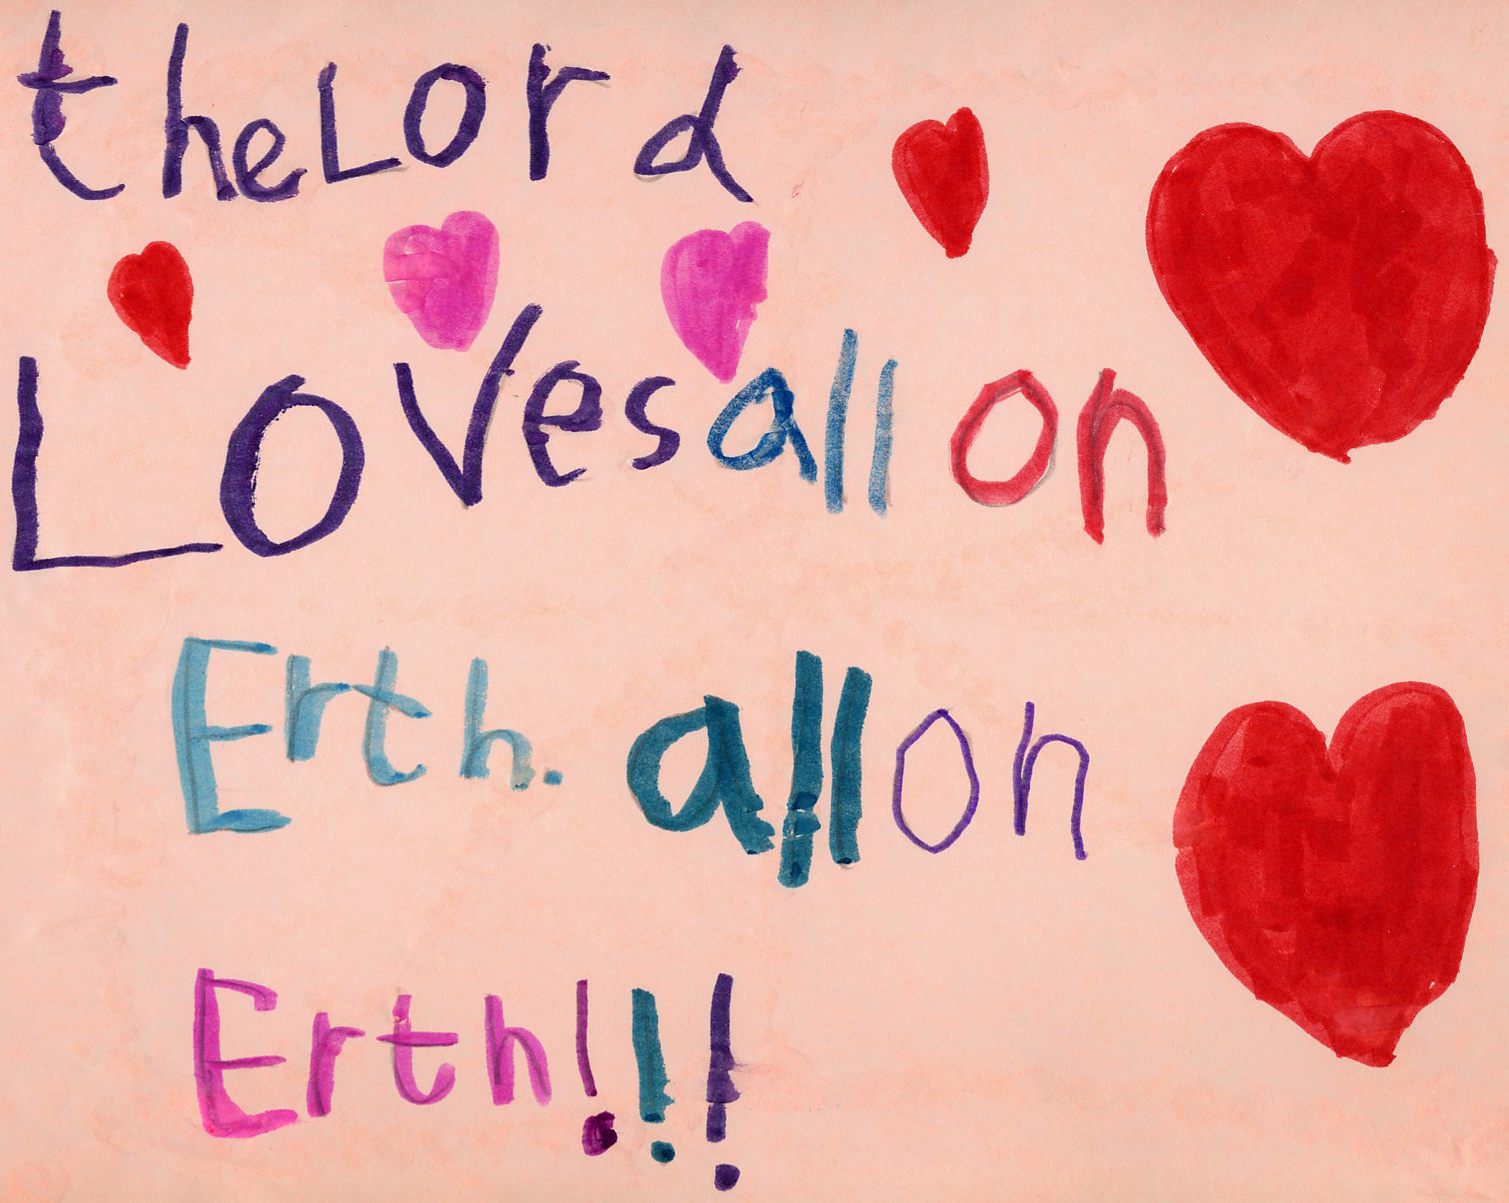 the Lord
Loves all on
Erth. all on
Erth!!!